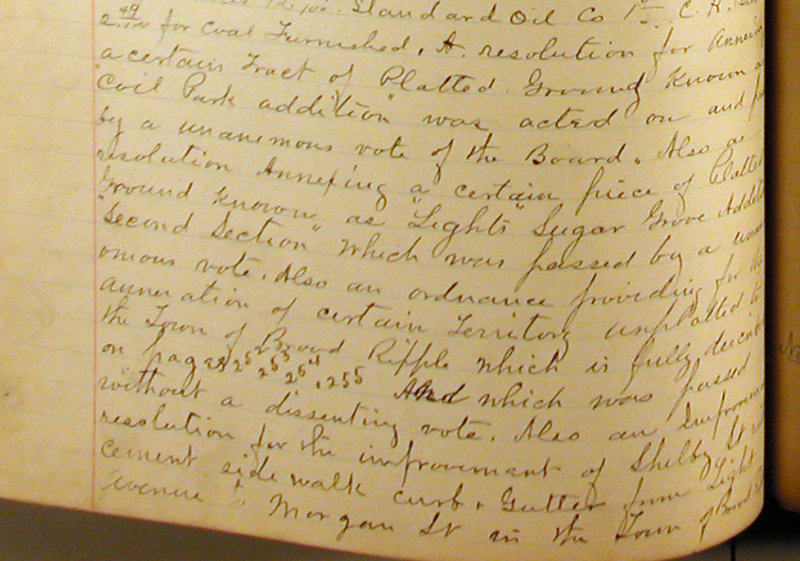 Standard Oil Co 1 C. H.
2.49 for Coal Furnished. A. resolution for Annexing
a certain Tract of Platted Ground Known
"Coil Park addition" was acted on and
by a unanemous vote of the Board. Also a
resolution Annexing a certain piece of Platted
Ground Known as "Lights" Sugar Grove Addition
"Second Section" Which was passed by a unan
omous vote. Also an ordnance providing for the
annexation of certain Territory unplatted to
the Town of Broad Ripple which is fully described
on pages 252 253 254, 255 And which was passed
without a dissenting vote. Also an Improvement
resolution for the improvement of Shelby St
cement side walk curb & Gutter from Light
avenue to Morgan St in the Town of Broad